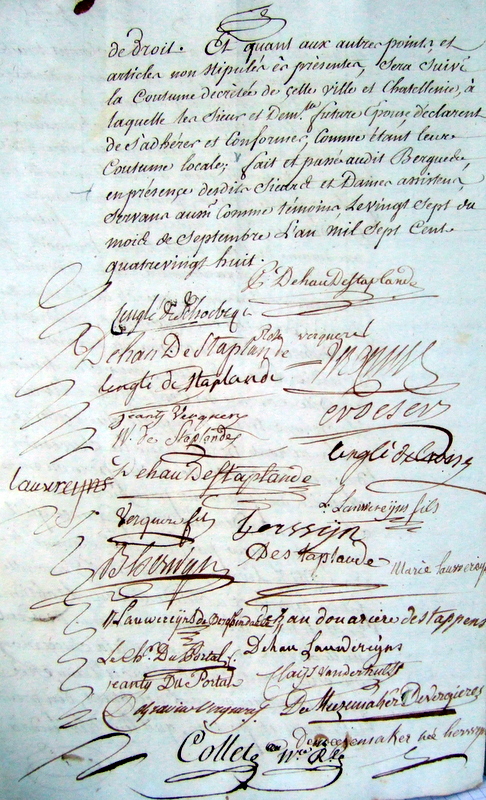 de droit. Et quant aux autres points et
articles non stipulés és présentes, sera suivie
la Coutume décretée de cette ville et Chatellenie, à
laquelle les Sieur et Dem.lle future Epouse déclarent
de s'adhérer et Conformer, Comme étant leur
Coutume locale; fait et passé audit Bergues
en présence desdits Sieurs et Dames assistens
servans aussi Comme témoins Le vingt Sept du
mois de Septembre L'an mil Sept Cent
quatrevingt huit.
C. Dehau DeStaplande
Lenglé de Schoebeque
Dehau De Staplande
vergueres
Lenglé de Staplande
jeanty Vergueres
W. de Staplandes
Dehau DeStaplande
Lauwreyns
Lauwereyns fils
verquere fils
herssyn
DeStaplande
Marie Lauwereyns
B herssyn
Lauwereyns de
dehau douarière destappens
Le Ch.r Du Portal
Dehau Lauwereyns
jeanty Du Portal
Clays Vanderhulst
De Meezemaker Devergueres
demeezemaker née herssyn
Collet